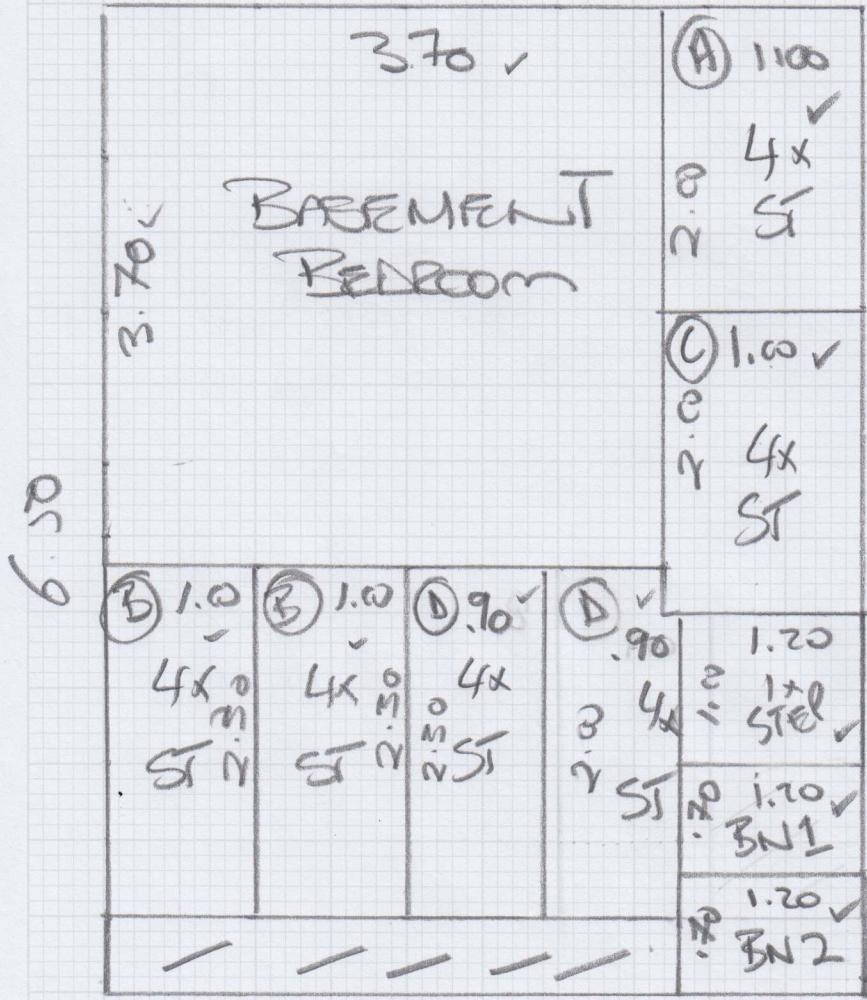 3.70 ✓
BASEMENT
BEDROOM
3.70 ✓
6.50
A 1.00 ✓
4x
ST
2.0
C 1.00 ✓
2.0
4x
ST
B 1.00 ✓
4x
ST
2.30
B 1.00 ✓
4x
ST
2.30
D .90 ✓
4x
ST
2.30
D ✓
.90
4x
ST
2.0
1.20
1x
STEP ✓
1.0
1.20 ✓
BN1
.70
1.20 ✓
BN2
.70